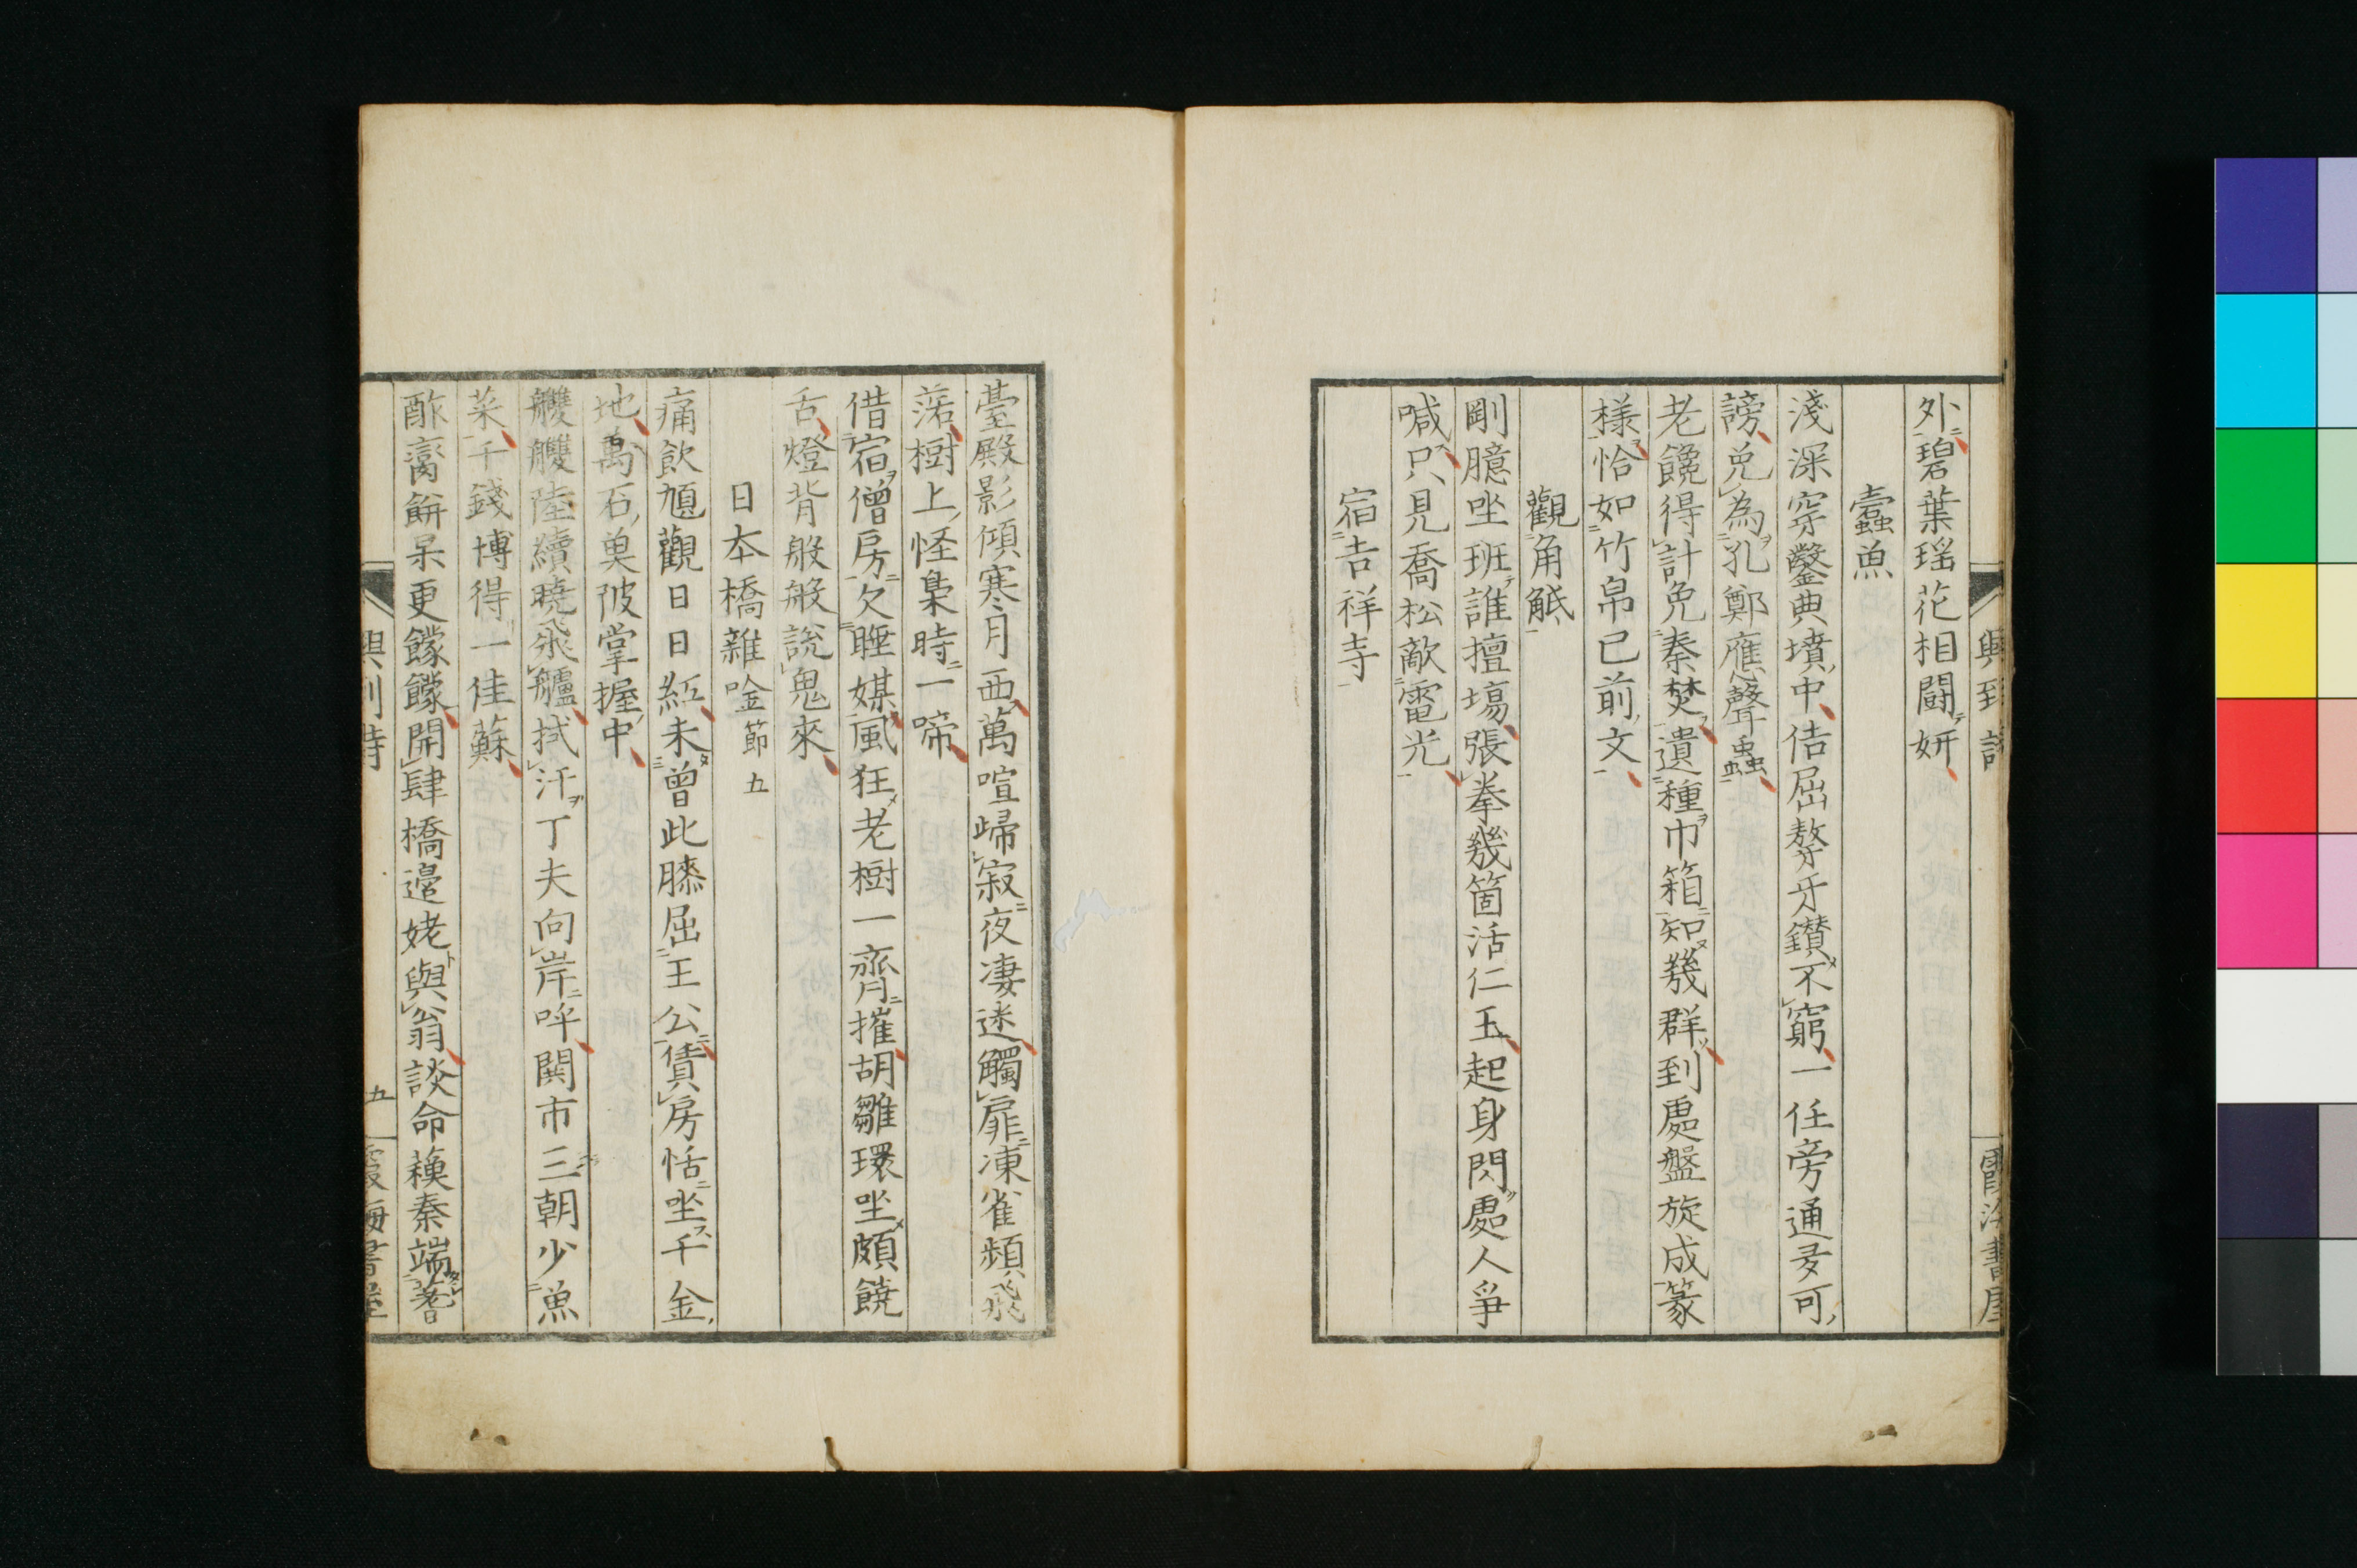 外碧葉瑶花相闘妍
蠧魚
淺深穿鑿典墳中佶屈聱牙鑚不窮一任旁通多可
謗免為孔鄭應聲蟲
老饞得計免秦焚遺種巾箱知幾群到處盤旋成篆
樣恰如竹帛已前文
觀角觝
剛臆坐班誰擅塲張拳幾箇活仁王起身閃處人爭
喊只見喬松敵電光
宿吉祥寺
臺殿影傾寒月西萬喧歸寂夜凄迷觸扉凍雀頻飛
落樹上怪梟時一啼
借宿僧房欠睡媒風狂老樹一齊摧胡雛環坐頗饒
舌燈背般般說鬼來
日本橋雜唫 節五
痛飲馗觀日日紅未曾此膝屈王公賃房恬坐千金
地萬石奠陂掌握中
艭艭陸續曉飛艫拭汗丁夫向岸呼関市三朝少魚
菜千錢博得一佳蘇
酢齏餅杲更饛饛開肆橋邉姥與翁談命蘓秦端蓍
五